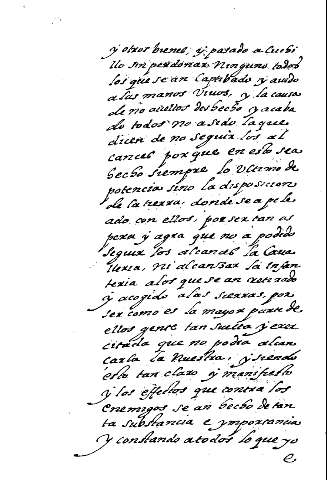 y otros bienes, y, pasado a Cuchi
llo sin perdonar Ninguno, todos
los que se an Captibado, y auido
a las manos Viuos, y la causa
de no auellos desbecho y acaba
do todos no a sido la que
dicen de no seguir los al
cances porque en esto sea
hecho siempre lo Ultimo de
potencia sino la disposicion
de la tierra, donde se a pele
ado con ellos, por ser tan as
pera y agra que no a podido
seguir los alcances la Caua
lleria, Ni alcanzar la Infan
teria a los que se an retirado
y acogido a las sierras, por
ser como es la mayor parte de
ellos gente tan suelta y exer
citada que no podia alcan
carla la Nuestra, y siendo
esto tan claro y manifiesto
y los effectos que contra los
enemigos se an hecho de tan
ta substancia e ymportancia
y constando a todos lo que yo
e